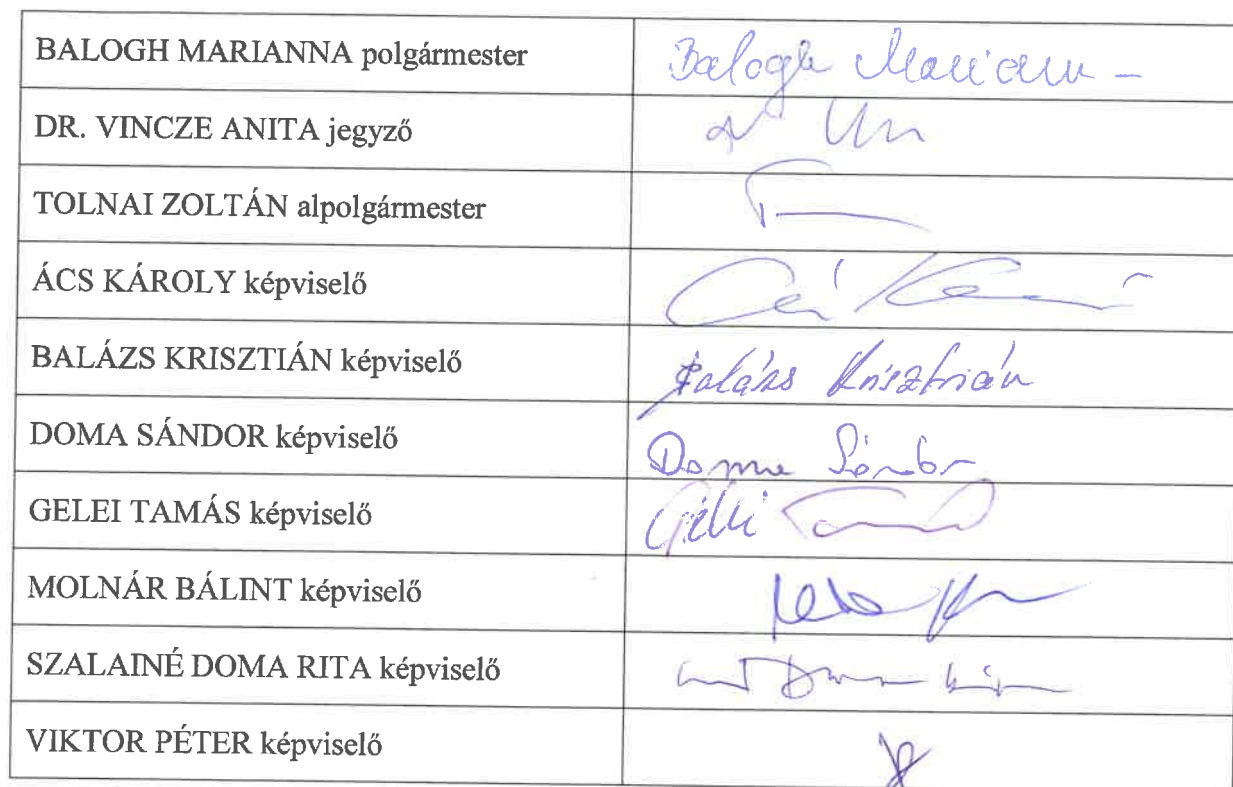 BALOGH MARIANNA polgármester Balogh Mariann
DR. VINCZE ANITA jegyző
TOLNAI ZOLTÁN alpolgármester
ÁCS KÁROLY képviselő
BALÁZS KRISZTIÁN képviselő Balázs Krisztián
DOMA SÁNDOR képviselő Doma Sándor
GELEI TAMÁS képviselő
MOLNÁR BÁLINT képviselő
SZALAINÉ DOMA RITA képviselő
VIKTOR PÉTER képviselő